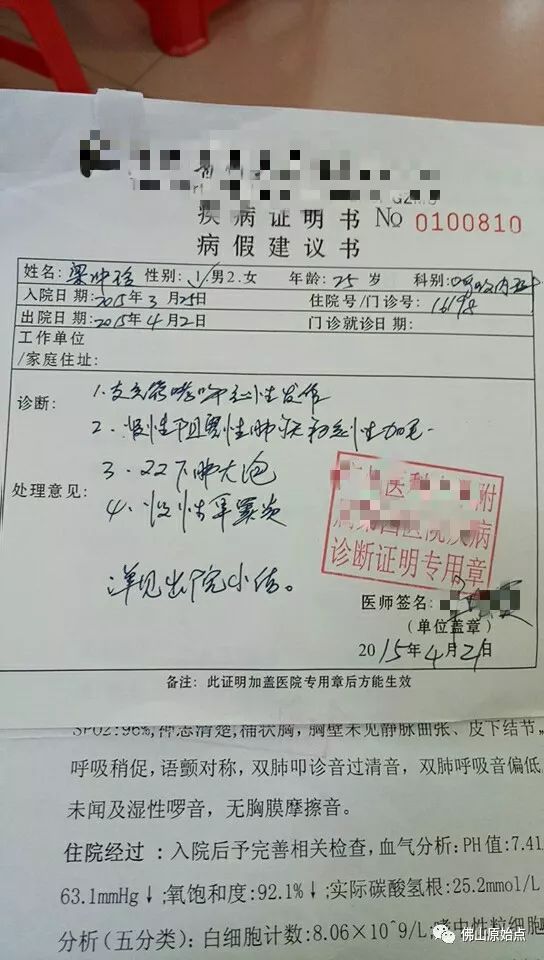 疾病证明书 No 0100810
病假建议书
姓名: 性别: 1.男2.女 年龄: 25 岁 科别: 呼吸内科
入院日期: 2015年3月25日 住院号/门诊号:
出院日期: 2015年4月2日 门诊就诊日期:
工作单位
/家庭住址:
诊断: 1.支气管哮喘急性发作
2.慢性阻塞性肺疾病急性加重
3. 下肺大泡
处理意见: 4.慢性鼻窦炎
附
医院疾病
诊断证明专用章
详见出院小结。
医师签名:
(单位盖章)
2015年4月2日
备注: 此证明加盖医院专用章后方能生效
SPO2:96%,神志清楚,桶状胸,胸壁未见静脉曲张、皮下结节。
呼吸稍促,语颤对称,双肺叩诊音过清音,双肺呼吸音偏低
未闻及湿性啰音,无胸膜摩擦音。
住院经过:入院后予完善相关检查,血气分析:PH值:7.41
63.1mmHg↓;氧饱和度:92.1%↓;实际碳酸氢根:25.2mmol/L
分析(五分类):白细胞计数:8.06×10^9/L;嗜中性粒细胞
佛山原始点